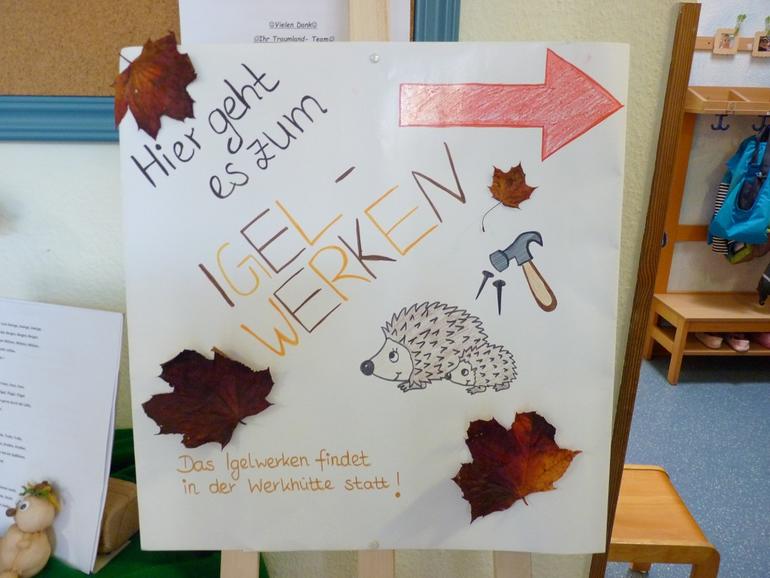 ☺Vielen Dank☺
☺Ihr Traumland- Team☺
Hier geht
es zum
IGEL-
WERKEN
Das Igelwerken findet
in der Werkhütte statt!